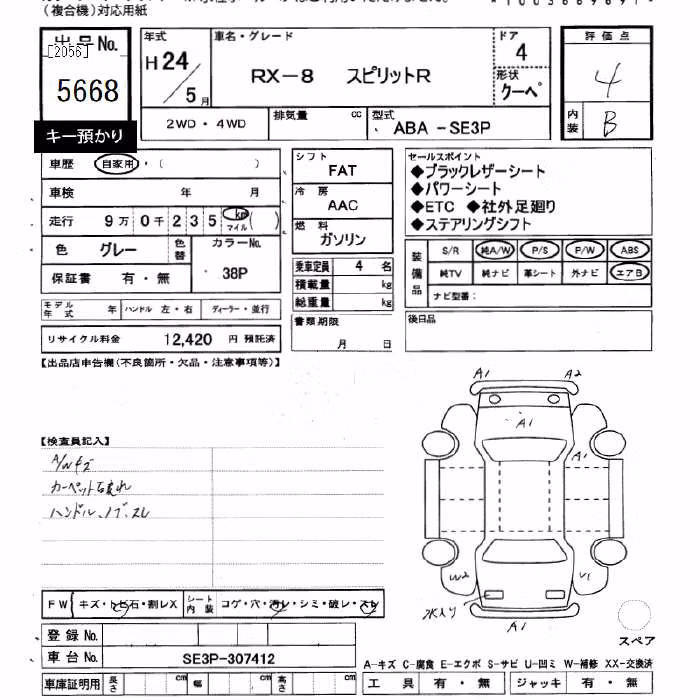 (複合機)対応用紙
出品No.
[2056]
5668
キー預かり
年式
H24/5月
車名・グレード
RX-8 スピリットR
ドア
4
形状
クーペ
評価点
4
内装
B
2WD・4WD
排気量 cc
型式
ABA -SE3P
車歴 自家用・( )
車検 年 月
走行 9万0千235 km マイル ( )
色 グレー
色替
カラーNo.
38P
保証書 有・無
モデル年式 年 ハンドル 左・右 ディーラー・並行
リサイクル料金 12,420 円 預託済
シフト
FAT
冷房
AAC
燃料
ガソリン
乗車定員 4 名
積載量 kg
総重量 kg
書類期限
月 日
セールスポイント
◆ブラックレザーシート
◆パワーシート
◆ETC ◆社外足廻り
◆ステアリングシフト
装備品
S/R 純A/W P/S P/W ABS
純TV 純ナビ 革シート 外ナビ エアB
ナビ型番:
後日品
【出品店申告欄(不良箇所・欠品・注意事項等)】
【検査員記入】
A/Wキズ
カーペット汚れ
ハンドル、ノブ、スレ
A1 A2
A1
A1
W2 U1
A1
スペア
FW キズ・トビ石・割レX
シート内装 コゲ・穴・汚レ・シミ・破レ・スレ
登録No.
車台No. SE3P-307412
車庫証明用 長さ cm 幅 cm 高さ cm
A-キズ C-腐食 E-エクボ S-サビ U-凹ミ W-補修 XX-交換済
工具 有・無 ジャッキ 有・無